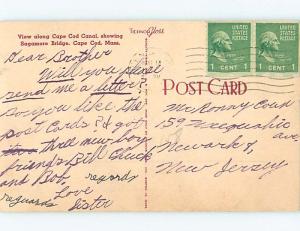 View along Cape Cod Canal, showing
Sagamore Bridge, Cape Cod, Mass.
Dear Brother
Will you please
send me a letter
do you like the
post Cards. I got
three new boy
friends Bill Chuck
and Bob. regards
reguards Love
Sister
UNITED STATES POSTAGE
1 CENT 1
UNITED STATES POSTAGE
1 CENT 1
POST CARD
Mr Ronny
159
Newark 8,
New Jersey